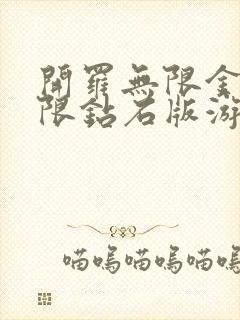 開羅無限金
限鈷石版游
喵嗚喵嗚喵嗚